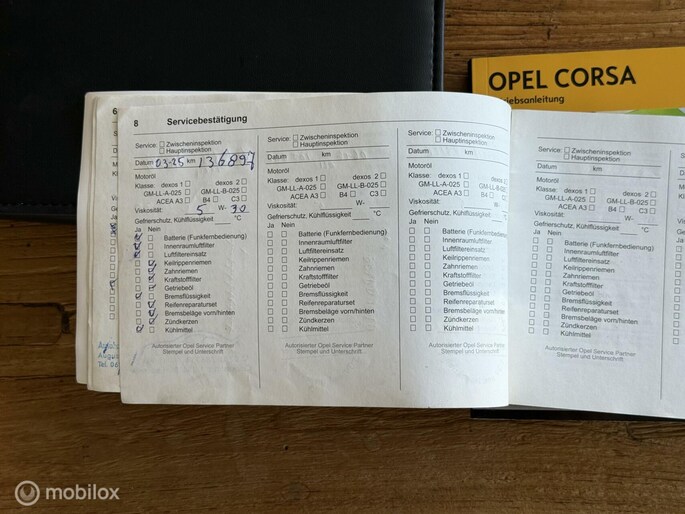 OPEL CORSA
riebsanleitung
6
8 Servicebestätigung
Service: Zwischeninspektion
Hauptinspektion
Datum 03-25 km 136897
Motoröl
Klasse: dexos 1 dexos 2
GM-LL-A-025 GM-LL-B-025
ACEA A3 B4 C3
Viskosität: 5 W- 30
Gefrierschutz, Kühlflüssigkeit °C
Ja Nein
Batterie (Funkfernbedienung)
Innenraumluftfilter
Luftfiltereinsatz
Keilrippenriemen
Zahnriemen
Kraftstofffilter
Getriebeöl
Bremsflüssigkeit
Reifenreparaturset
Bremsbeläge vorn/hinten
Zündkerzen
Kühlmittel
Autorisierter Opel Service Partner
Stempel und Unterschrift
Service: Zwischeninspektion
Hauptinspektion
Datum km
Motoröl
Klasse: dexos 1 dexos 2
GM-LL-A-025 GM-LL-B-025
ACEA A3 B4 C3
Viskosität: W-
Gefrierschutz, Kühlflüssigkeit °C
Ja Nein
Batterie (Funkfernbedienung)
Innenraumluftfilter
Luftfiltereinsatz
Keilrippenriemen
Zahnriemen
Kraftstofffilter
Getriebeöl
Bremsflüssigkeit
Reifenreparaturset
Bremsbeläge vorn/hinten
Zündkerzen
Kühlmittel
Autorisierter Opel Service Partner
Stempel und Unterschrift
Service: Zwischeninspektion
Hauptinspektion
Datum km
Motoröl
Klasse: dexos 1 dexos 2
GM-LL-A-025 GM-LL-B-025
ACEA A3 B4 C3
Viskosität: W-
Gefrierschutz, Kühlflüssigkeit °C
Ja Nein
Batterie (Funkfernbedienung)
Innenraumluftfilter
Luftfiltereinsatz
Keilrippenriemen
Zahnriemen
Kraftstofffilter
Getriebeöl
Bremsflüssigkeit
Reifenreparaturset
Bremsbeläge vorn/hinten
Zündkerzen
Kühlmittel
Autorisierter Opel Service Partner
Stempel und Unterschrift
Service: Zwischeninspektion
Hauptinspektion
Datum km
Motoröl
Klasse: dexos 1 dexos 2
GM-LL-A-025 GM-LL-B-025
ACEA A3 B4 C3
Viskosität: W-
Gefrierschutz, Kühlflüssigkeit °C
Ja Nein
Batterie (Funkfernbedienung)
Innenraumluftfilter
Luftfiltereinsatz
Keilrippenriemen
Zahnriemen
Kraftstofffilter
Getriebeöl
Bremsflüssigkeit
Reifenreparaturset
Bremsbeläge vorn/hinten
Zündkerzen
Kühlmittel
Autorisierter Opel Service Partner
Stempel und Unterschrift
Tel. 06
mobilox